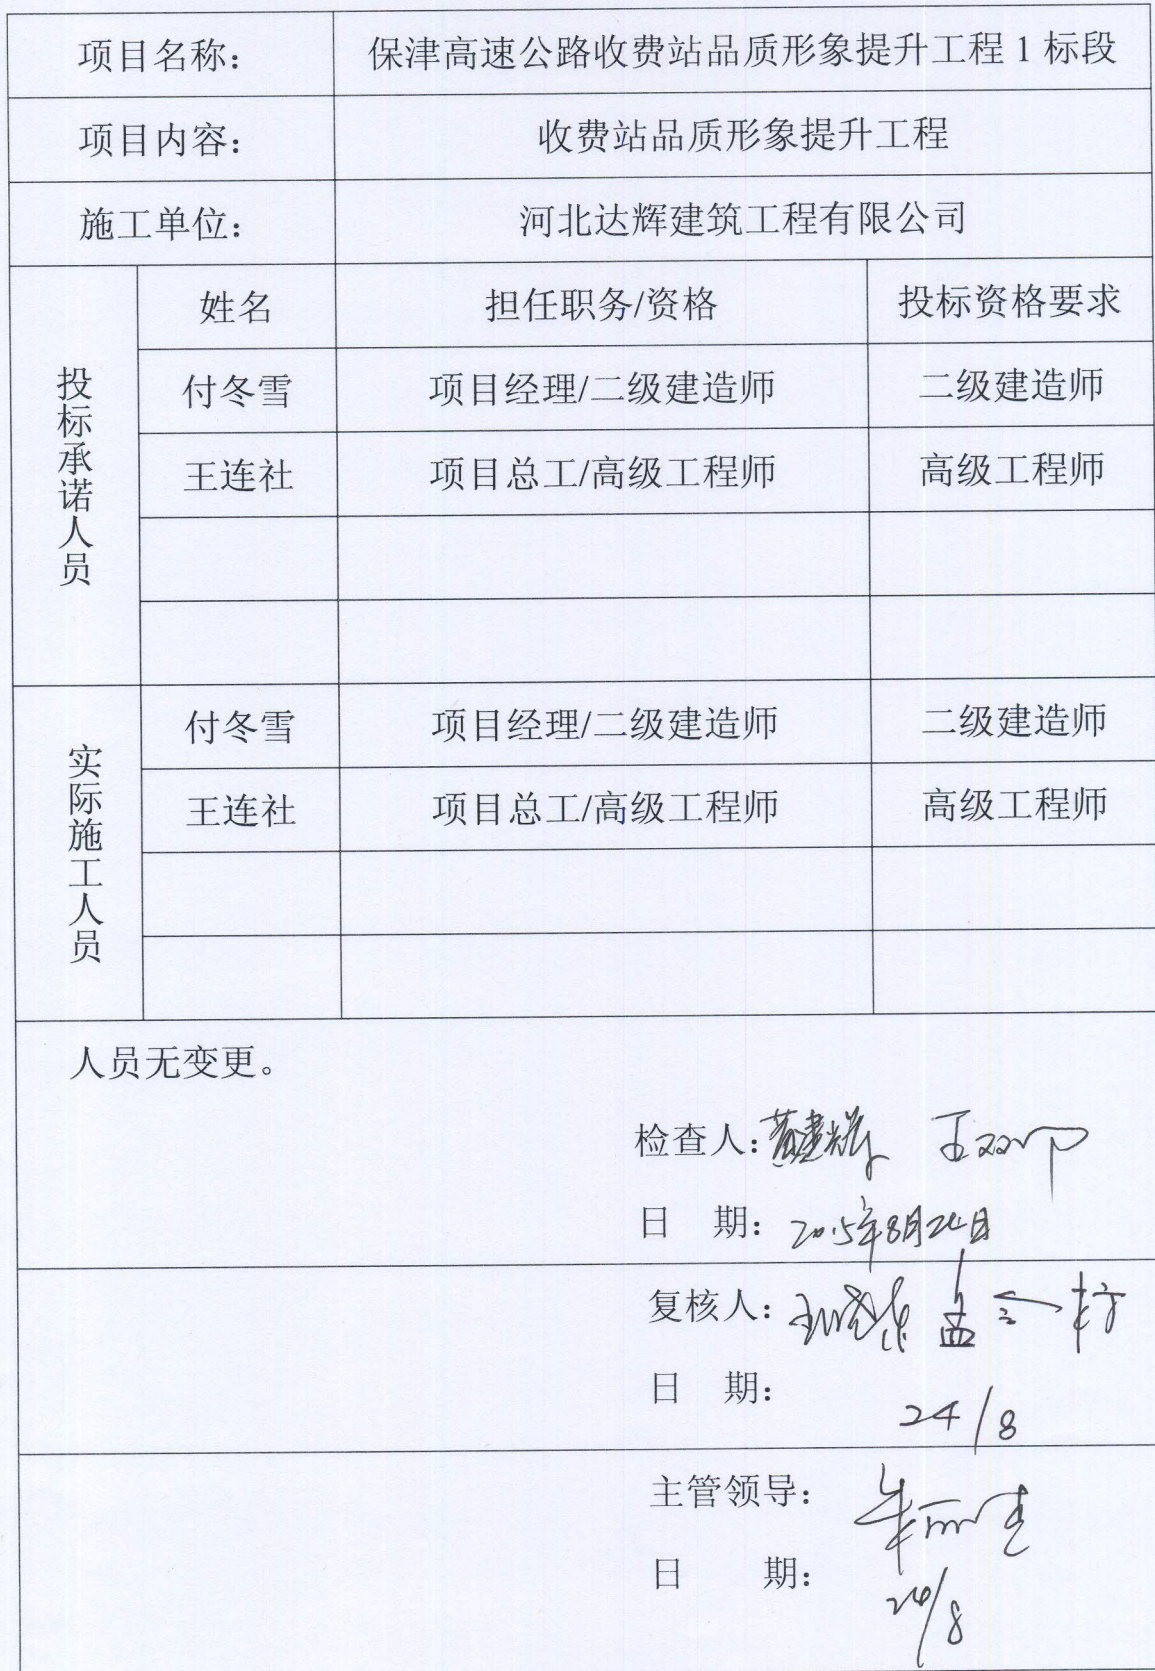 项目名称： 保津高速公路收费站品质形象提升工程 1 标段
项目内容： 收费站品质形象提升工程
施工单位： 河北达辉建筑工程有限公司
投标承诺人员
姓名 担任职务/资格 投标资格要求
付冬雪 项目经理/二级建造师 二级建造师
王连社 项目总工/高级工程师 高级工程师
实际施工人员
付冬雪 项目经理/二级建造师 二级建造师
王连社 项目总工/高级工程师 高级工程师
人员无变更。
检查人：
日 期： 2015年8月24日
复核人：
日 期：
24/8
主管领导：
日 期：
24/8